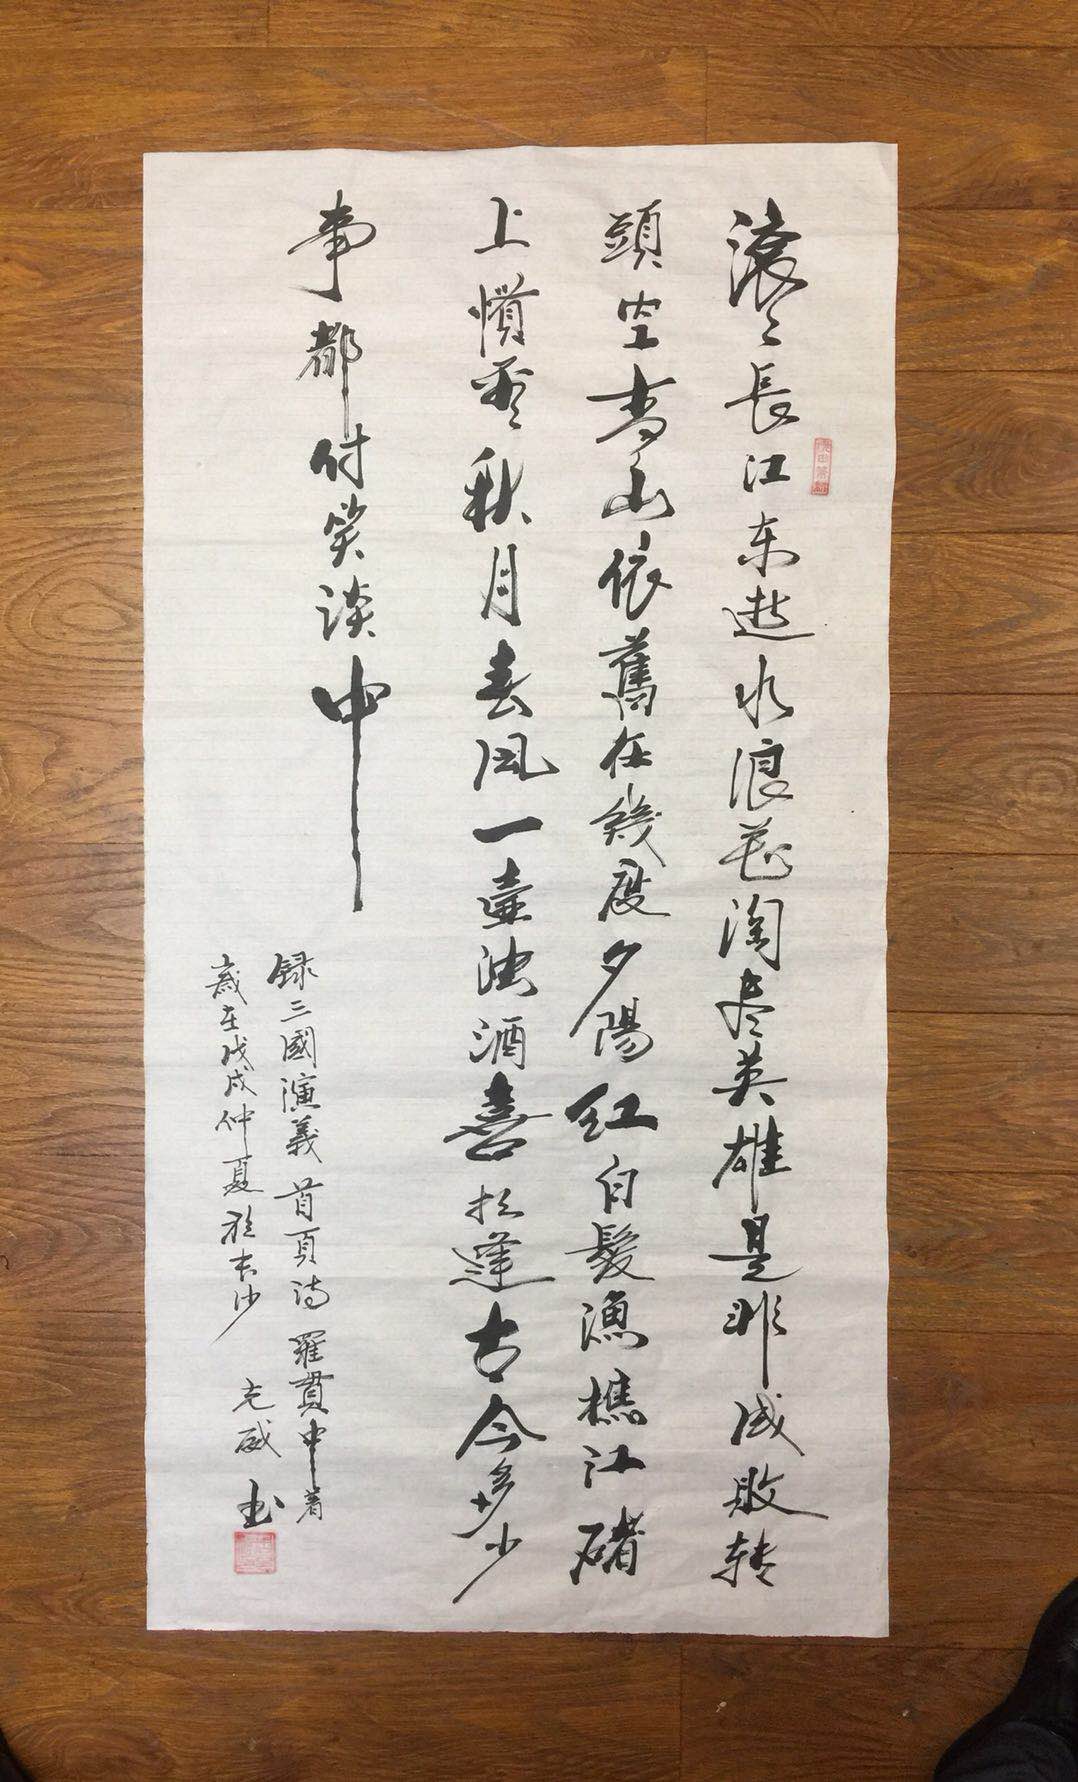 滾〻長江东逝水浪花淘尽英雄是非成敗转
頭空青山依舊在幾度夕陽红白髮漁樵江渚
上慣看秋月春风一壺浊酒喜相逢古今多少
事都付笑谈中
録三國演義首頁诗羅貫中著
歲在戊戌仲夏於长沙
克威书